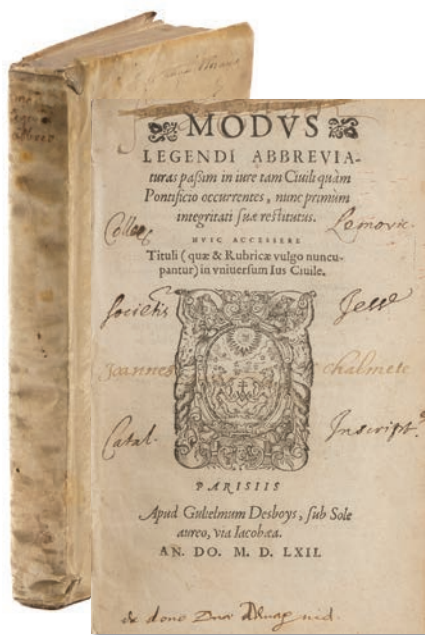 MODVS
LEGENDI ABBREVIA-
turas paſsim in iure tam Ciuili quàm
Pontificio occurrentes, nunc primùm
integritati ſuæ reſtitutus.
Colleg Lemovic.
HVIC ACCESSERE
Tituli (quæ & Rubricæ vulgo nuncu-
pantur) in vniuerſum Ius Ciuile.
Societis Jesu
Joannes chalmete
Catal. Inscript.
PARISIIS
Apud Gulielmum Desboys, ſub Sole
aureo, via Iacobæa.
AN. DO. M. D. LXII.
ex dono